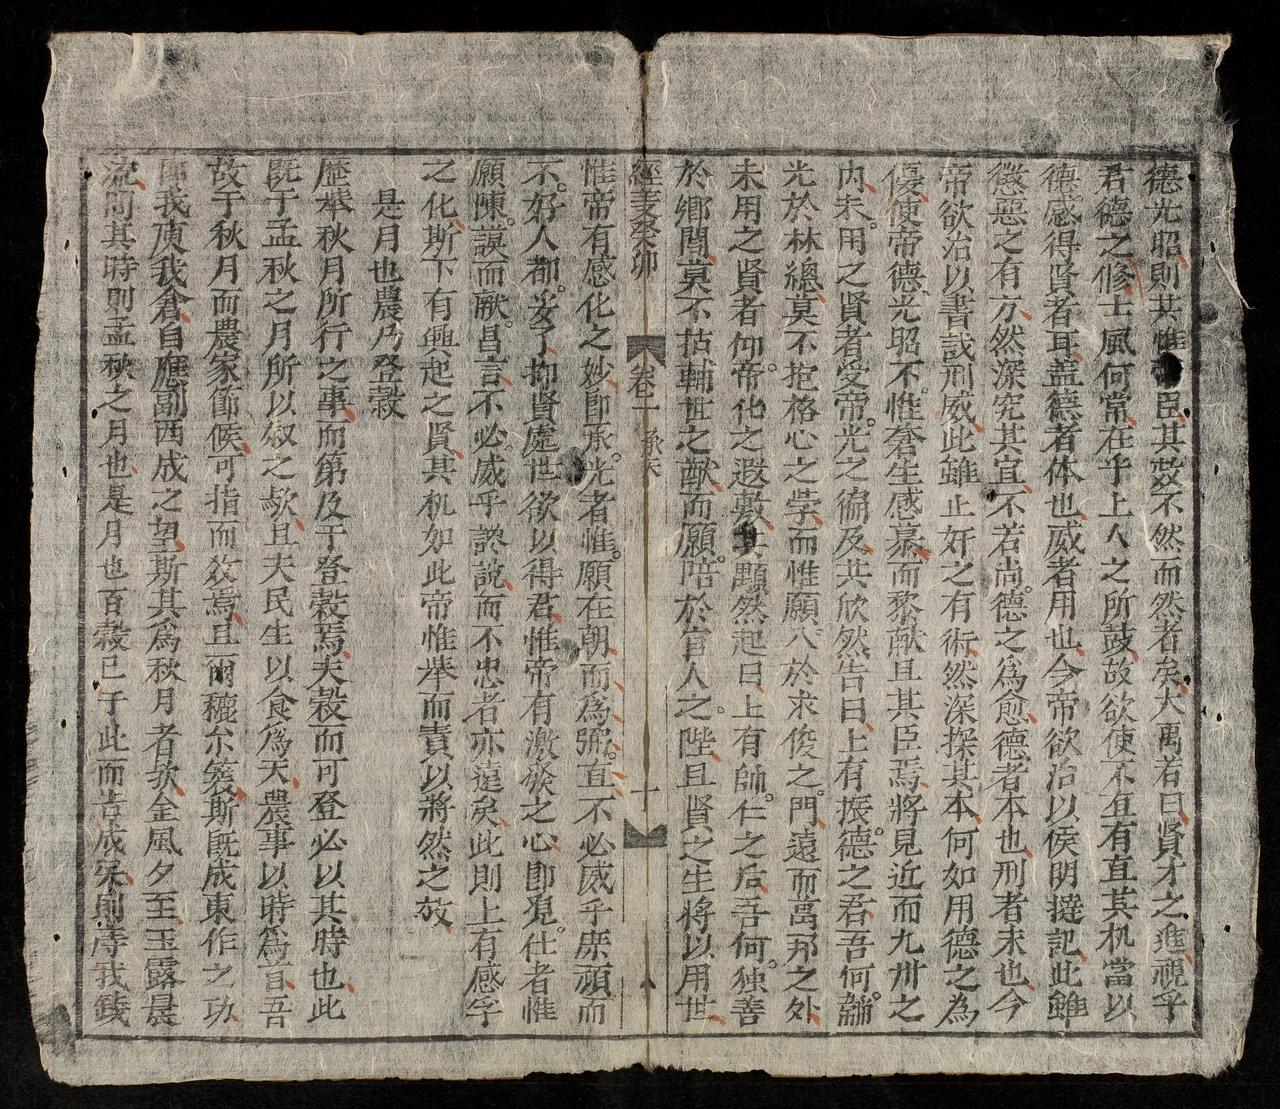 德光昭則其惟帝臣其效不然而然者矣大禹若曰賢才之進視乎
君德之修士風何常在乎上人之所鼓故欲使不直有直其机當以
德感得賢者耳盖德者体也威者用也今帝欲治以侯明撻記此雖
懲惡之有方然深究其宜不若尚德之爲愈德者本也刑者末也今
帝欲治以書哉刑威此雖止奸之有術然深探其本何如用德之為
優使帝德光昭不惟蒼生感慕而黎獻且其臣焉將見近而九州之
内未用之賢者受帝光之徧及共欣然告曰上有振德之君吾何
光於林總莫不抱格心之学而惟願八於求俊之門遠而萬邦之外
未用之賢者仰帝化之遐敷共顯然起曰上有帥仁之后吾何独善
於鄉閭莫不拮輔世之猷而願陪於官人之陛且賢之生將以用世
經義癸卯 卷一 承天 十
惟帝有感化之妙即承光者惟願在朝而為弼直不必威乎庶頑而
不好人都妥了抑賢處世欲以得君惟帝有激發之心即覓仕者惟
願陳謨而厭昌言不必威乎讒說而不忠者亦遠矣此則上有感孚
之化斯下有興起之賢其机如此帝惟舉而責以將然之效
是月也農乃登穀
歷舉秋月所行之事而第及于登穀焉夫穀而可登必以其時也此
既于孟秋之月所以叙之歟且夫民生以食為天農事以時為首吾
故于秋月而農家節候可指而效焉且爾穮尒蓘斯既成東作之功
而我庾我倉自應副西成之望斯其為秋月者欤金風夕至玉露晨
流問其時則孟秋之月也是月也百穀已于此而告成矣則庤我錢